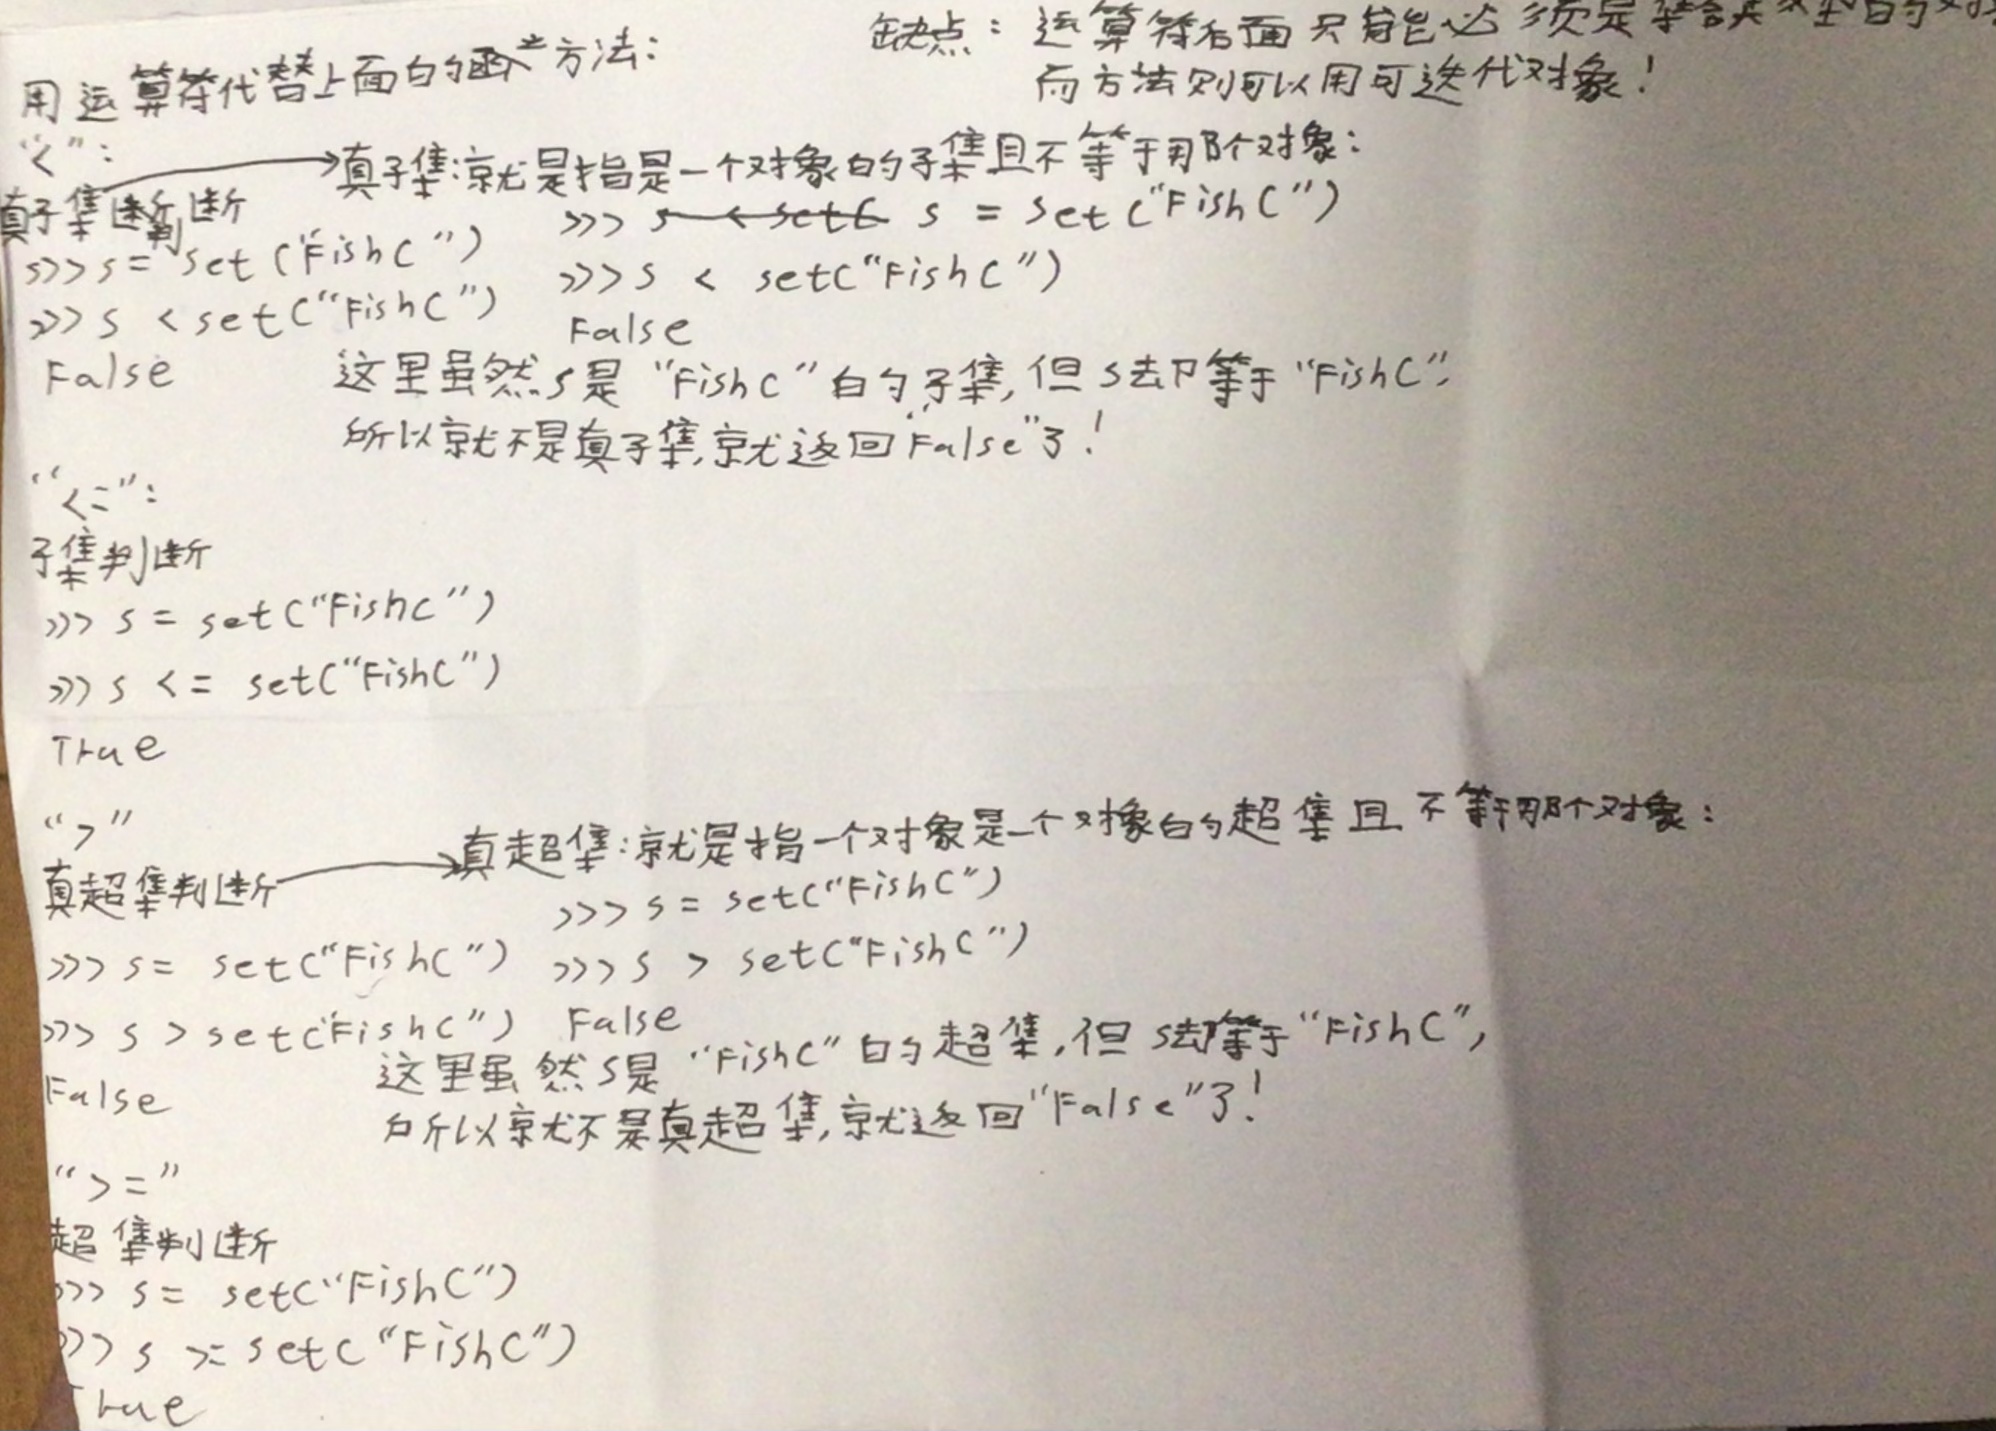 用运算符代替上面的函数方法：
缺点：运算符右面只能必须是集合类型的对象
而方法则可以用可迭代对象！
“<”：
真子集：就是指是一个对象的子集且不等于那个对象：
真子集判断
>>> s = set("FishC")
>>> s < set("FishC")
False
>>> s = set("FishC")
>>> s < set("FishC")
False
这里虽然s是“FishC”的子集,但s却等于“FishC”,
所以就不是真子集,就返回“False”了！
“<=”：
子集判断
>>> s = set("FishC")
>>> s <= set("FishC")
True
“>”
真超集判断
真超集：就是指一个对象是一个对象的超集且不等于那个对象：
>>> s = set("FishC")
>>> s > set("FishC")
False
>>> s = set("FishC")
>>> s > set("FishC")
False
这里虽然s是“FishC”的超集,但s却等于“FishC”,
所以就不是真超集,就返回“False”了！
“>=”
超集判断
>>> s = set("FishC")
>>> s >= set("FishC")
True